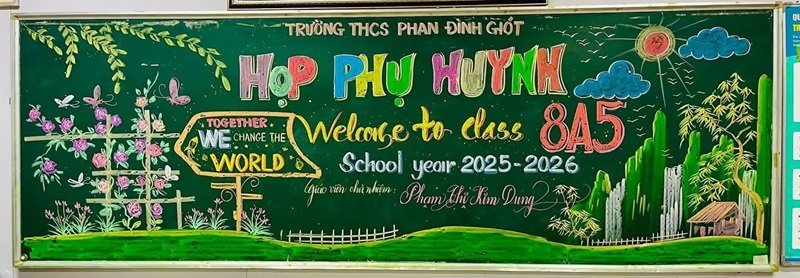 TRƯỜNG THCS PHAN ĐÌNH GIÓT
HỌP PHỤ HUYNH
TOGETHER
WE CHANGE THE
WORLD
Welcome to class 8A5
School year 2025-2026
Giáo viên chủ nhiệm: Phạm Thị Kim Dung